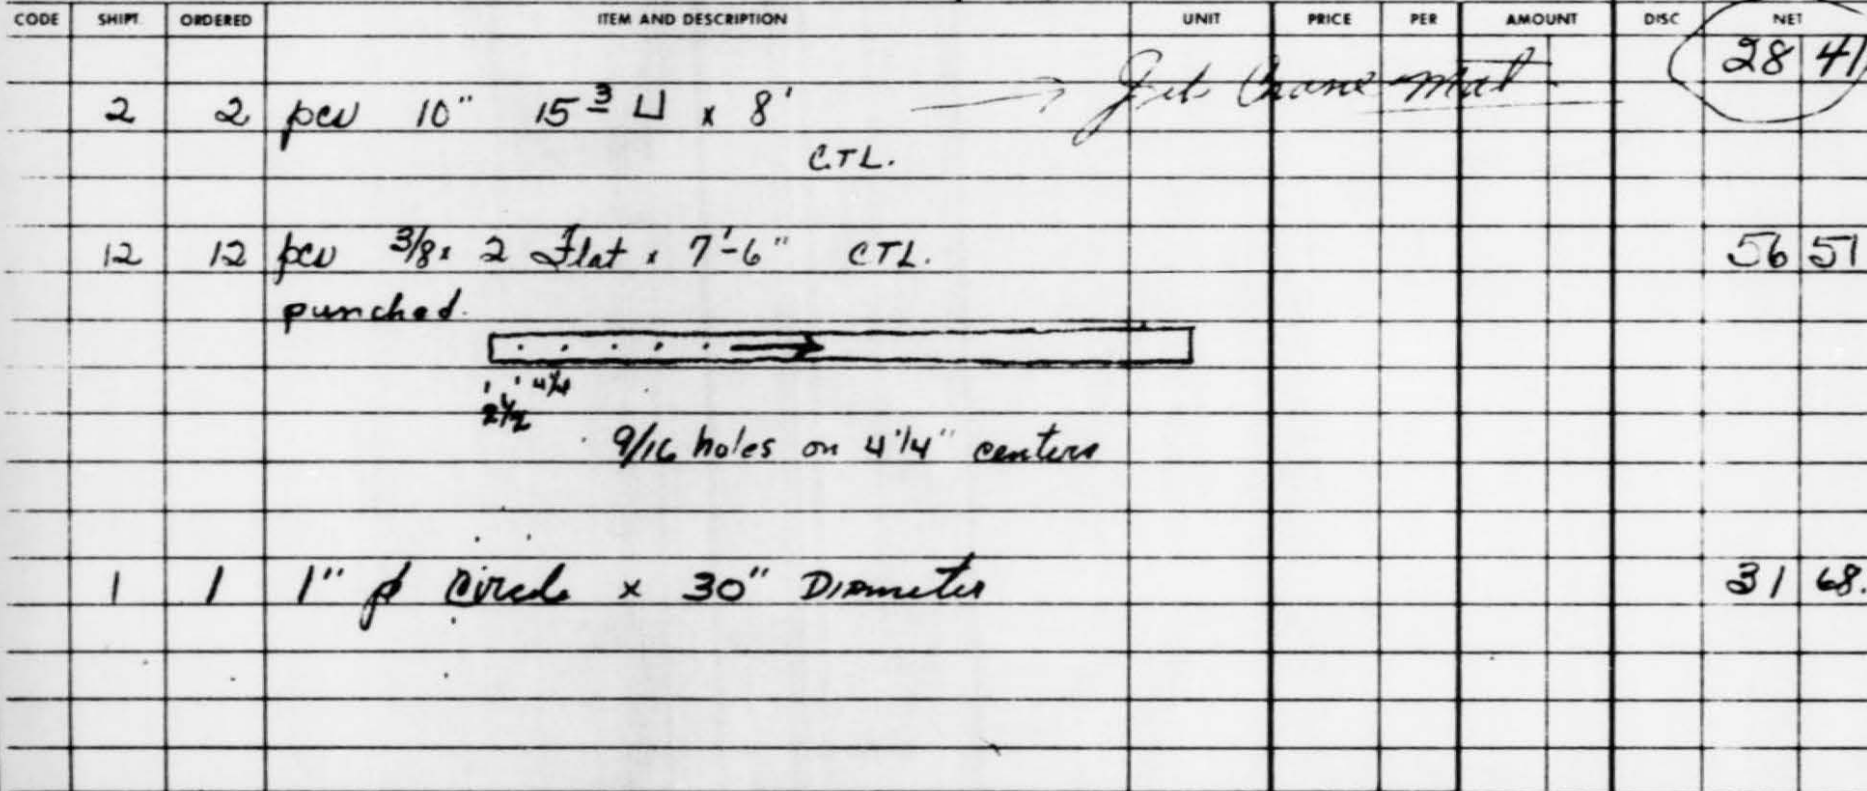 CODE SHIPT. ORDERED ITEM AND DESCRIPTION UNIT PRICE PER AMOUNT DISC NET
28 41
2 2 pcs 10" 15 3 ⊔ x 8' → Crane Mat
CTL.
12 12 pcs 3/8 x 2 Flat x 7'-6" CTL. 56 51
punched.
4 1/4
2 1/2
9/16 holes on 4 1/4" centers
1 1 1" Circle x 30" Diameter 31 68.